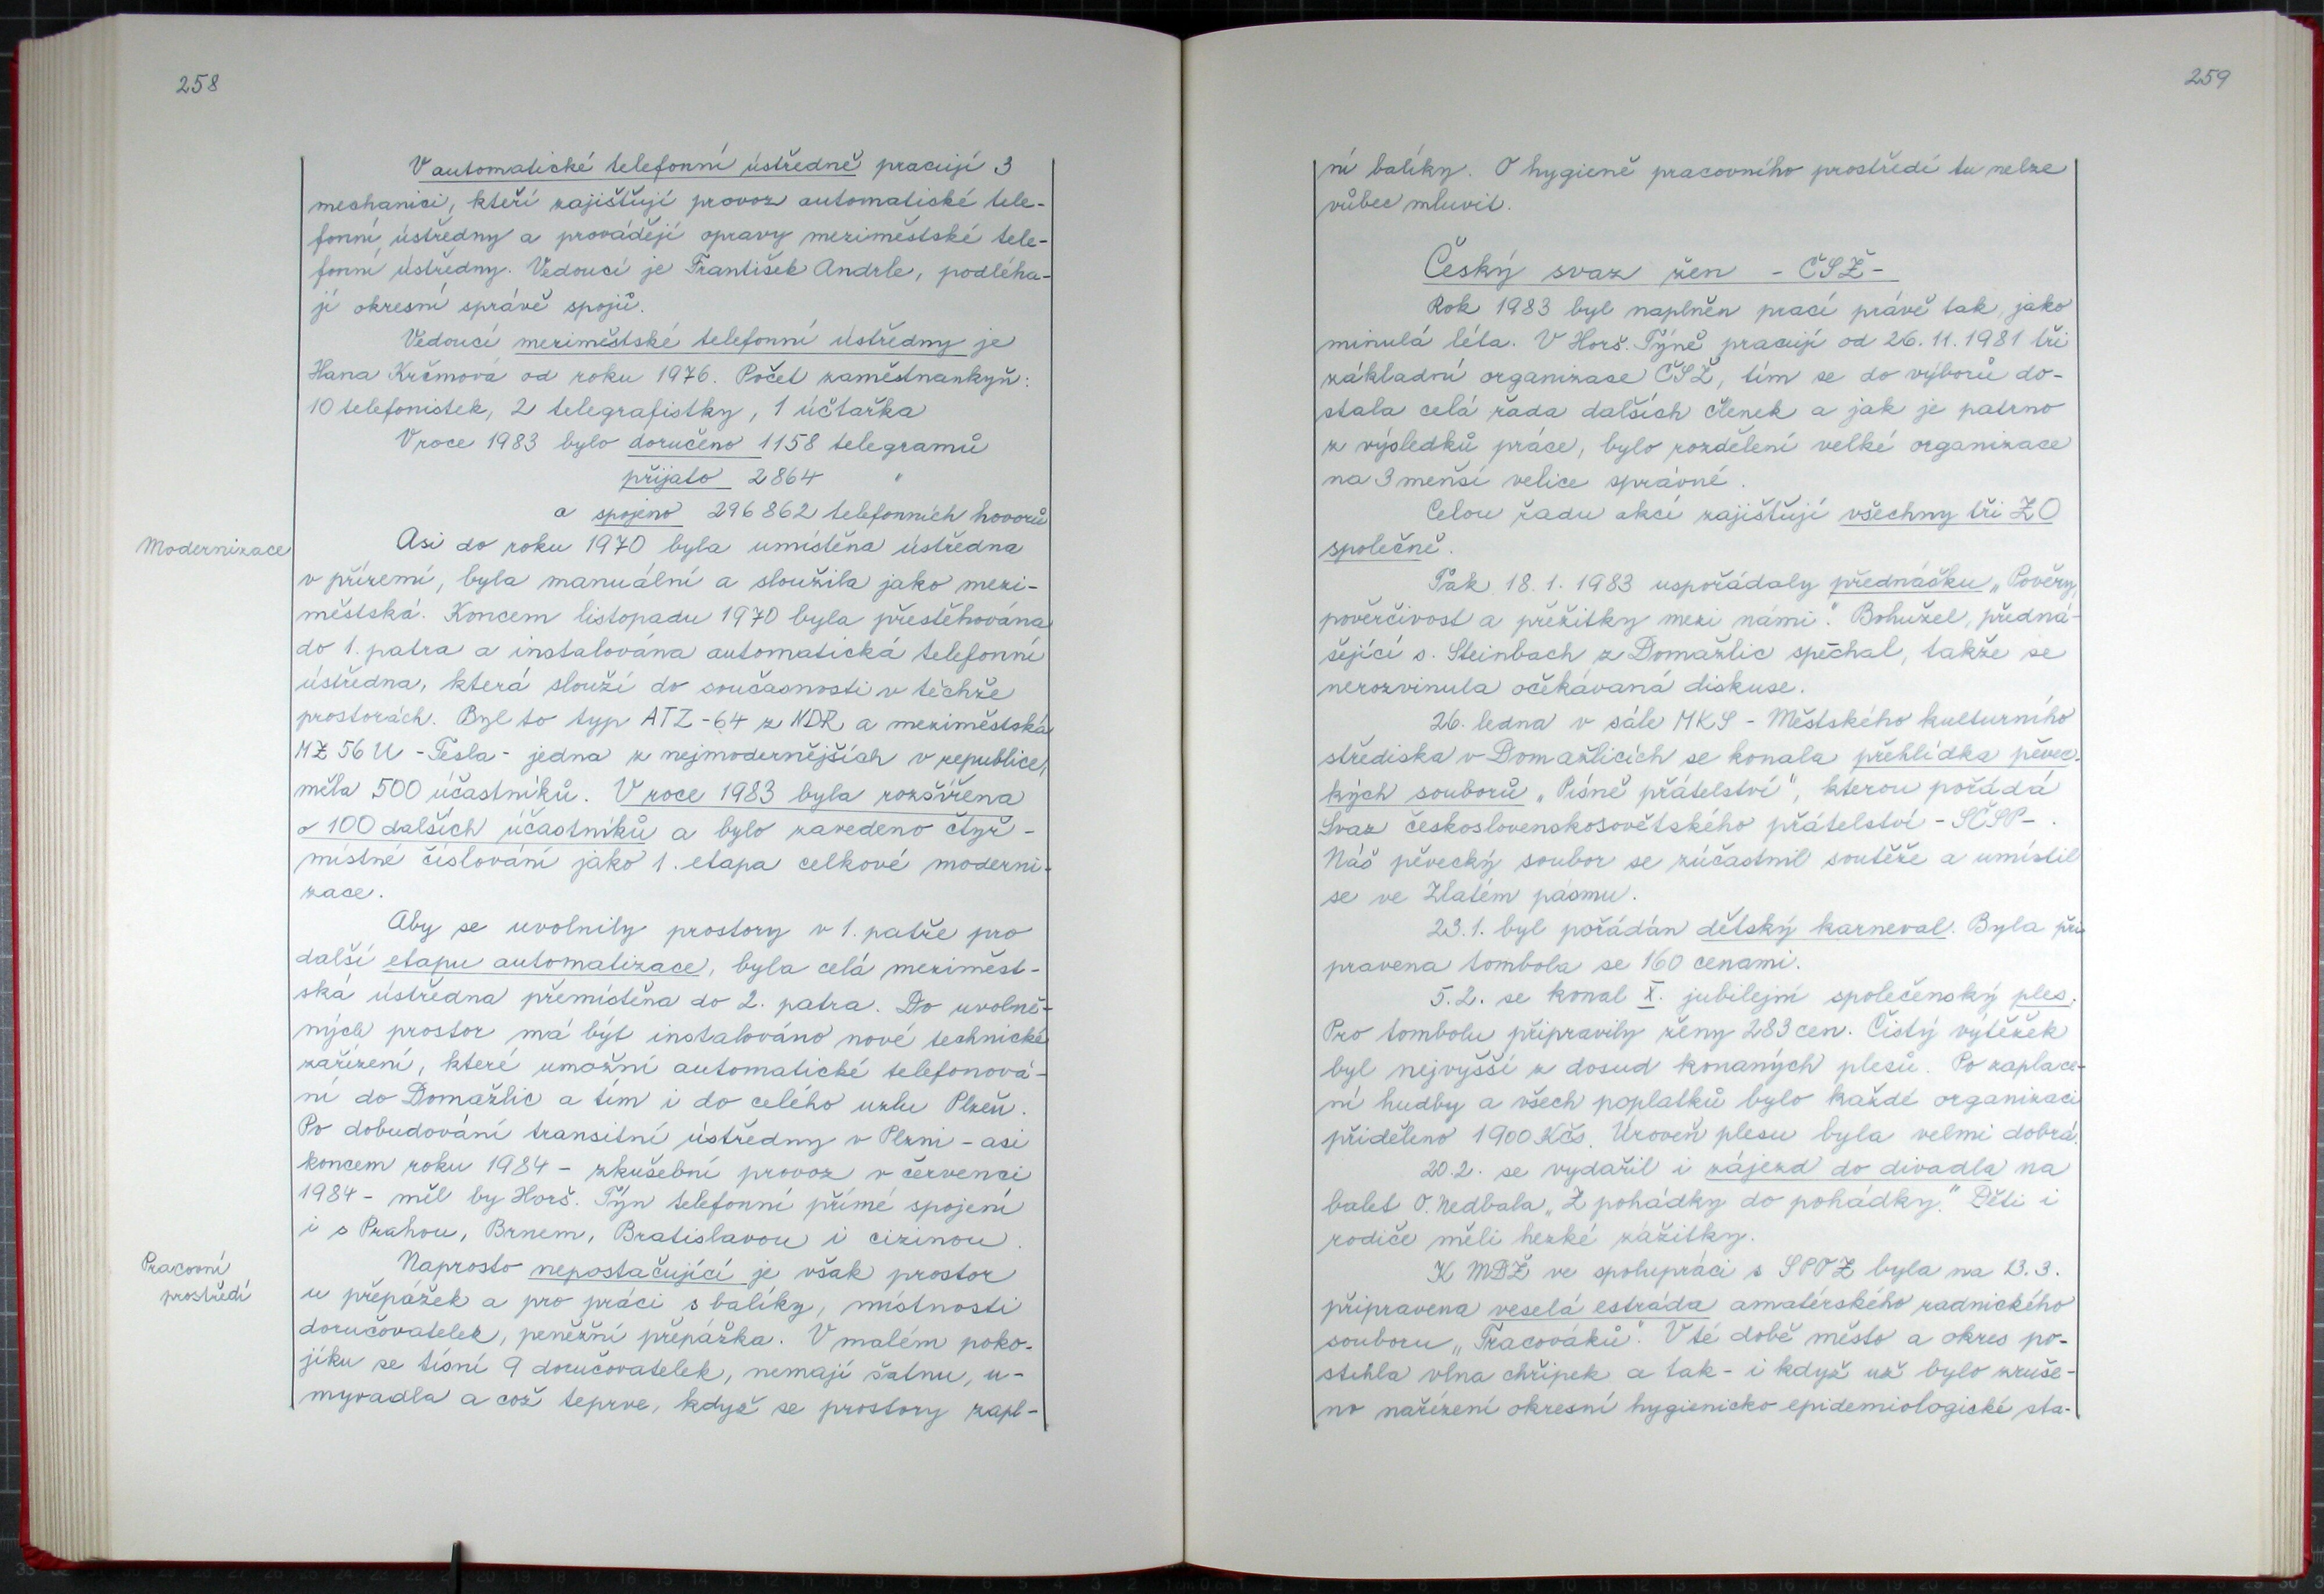 258
V automatické telefonní ústředně pracují 3
mechanici, kteří zajišťují provoz automatické tele-
fonní ústředny a provádějí opravy meziměstské tele-
fonní ústředny. Vedoucí je František Andrle, podléha-
jí okresní správě spojů.
Vedoucí meziměstské telefonní ústředny je
Hana Krčmová od roku 1976. Počet zaměstnankyň:
10 telefonistek, 2 telegrafistky, 1 účtařka
V roce 1983 bylo doručeno 1158 telegramů
přijato 2864 "
a spojeno 296 862 telefonních hovorů
Modernizace
Asi do roku 1970 byla umístěna ústředna
v přízemí, byla manuální a sloužila jako mezi-
městská. Koncem listopadu 1970 byla přestěhována
do 1. patra a instalována automatická telefonní
ústředna, která slouží do současnosti v těchže
prostorách. Byl to typ ATZ-64 z NDR a meziměstská
MZ 56 U - Tesla - jedna z nejmodernějších v republice,
měla 500 účastníků. V roce 1983 byla rozšířena
o 100 dalších účastníků a bylo zavedeno čtyř-
místné číslování jako 1. etapa celkové moderni-
zace.
Aby se uvolnily prostory v 1. patře pro
další etapu automatizace, byla celá meziměst-
ská ústředna přemístěna do 2. patra. Do uvolně-
ných prostor má být instalováno nové technické
zařízení, které umožní automatické telefonová-
ní do Domažlic a tím i do celého uzlu Plzeň.
Po dobudování transitní ústředny v Plzni - asi
koncem roku 1984 - zkušební provoz v červenci
1984 - měl by Horš. Týn telefonní přímé spojení
i s Prahou, Brnem, Bratislavou i cizinou.
Pracovní
prostředí
Naprosto nepostačující je však prostor
u přepážek a pro práci s balíky, místnosti
doručovatelek, peněžní přepážka. V malém poko-
jíku se tísní 9 doručovatelek, nemají šatnu, u-
myvadla a což teprve, když se prostory zapl-
259
ní balíky. O hygieně pracovního prostředí tu nelze
vůbec mluvit.
Český svaz žen - ČSŽ -
Rok 1983 byl naplněn prací právě tak, jako
minulá léta. V Horš. Týně pracují od 26. 11. 1981 tři
základní organizace ČSŽ, tím se do výborů do-
stala celá řada dalších členek a jak je patrno
z výsledků práce, bylo rozdělení velké organizace
na 3 menší velice správné.
Celou řadu akcí zajišťují všechny tři ZO
společně.
Tak 18. 1. 1983 uspořádaly přednášku „Pověry,
pověrčivost a přežitky mezi námi." Bohužel, předná-
šející s. Steinbach z Domažlic spěchal, takže se
nerozvinula očekávaná diskuse.
26. ledna v sále MKS - Městského kulturního
střediska v Domažlicích se konala přehlídka pěvec-
kých souborů „Písně přátelství", kterou pořádá
Svaz československosovětského přátelství - SČSP - .
Náš pěvecký soubor se zúčastnil soutěže a umístil
se ve Zlatém pásmu.
23. 1. byl pořádán dětský karneval. Byla při
pravena tombola se 160 cenami.
5. 2. se konal X. jubilejní společenský ples.
Pro tombolu připravily ženy 283 cen. Čistý výtěžek
byl nejvyšší z dosud konaných plesů. Po zaplace-
ní hudby a všech poplatků bylo každé organizaci
přiděleno 1900 Kčs. Úroveň plesu byla velmi dobrá.
20. 2. se vydařil i zájezd do divadla na
balet O. Nedbala „Z pohádky do pohádky." Děti i
rodiče měli hezké zážitky.
K MDŽ ve spolupráci s SPOZ byla na 13. 3.
připravena veselá estráda amatérského radnického
souboru „Tracováků". V té době město a okres po-
stihla vlna chřipek a tak - i když už bylo zruše-
no nařízení okresní hygienicko epidemiologické sta-